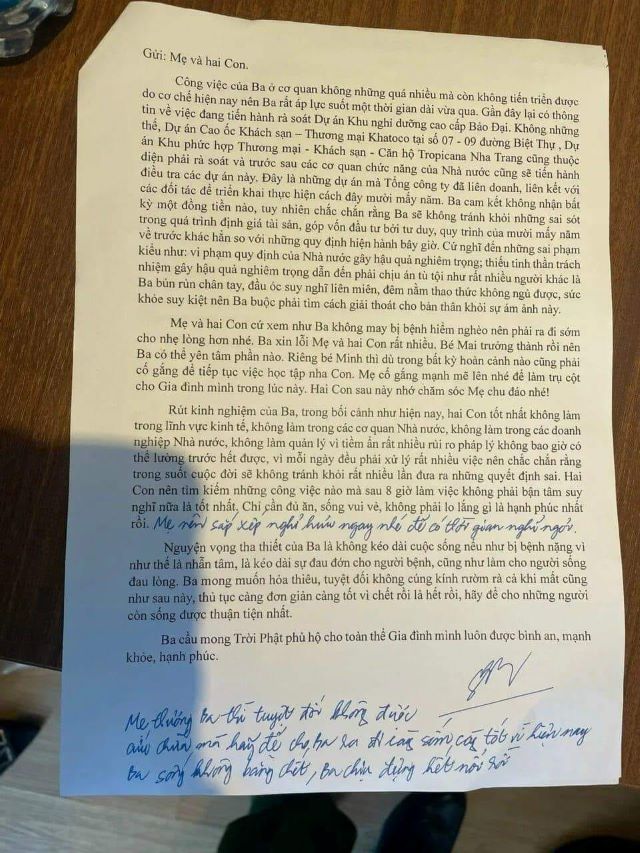 Gửi: Mẹ và hai Con.
Công việc của Ba ở cơ quan không những quá nhiều mà còn không tiến triển được
do cơ chế hiện nay nên Ba rất áp lực suốt một thời gian dài vừa qua. Gần đây lại có thông
tin về việc đang tiến hành rà soát Dự án Khu nghỉ dưỡng cao cấp Bảo Đại. Không những
thế, Dự án Cao ốc Khách sạn – Thương mại Khatoco tại số 07 - 09 đường Biệt Thự , Dự
án Khu phức hợp Thương mại - Khách sạn - Căn hộ Tropicana Nha Trang cũng thuộc
diện phải rà soát và trước sau các cơ quan chức năng của Nhà nước cũng sẽ tiến hành
điều tra các dự án này. Đây là những dự án mà Tổng công ty đã liên doanh, liên kết với
các đối tác để triển khai thực hiện cách đây mười mấy năm. Ba cam kết không nhận bất
kỳ một đồng tiền nào, tuy nhiên chắc chắn rằng Ba sẽ không tránh khỏi những sai sót
trong quá trình định giá tài sản, góp vốn đầu tư bởi tư duy, quy trình của mười mấy năm
về trước khác hẳn so với những quy định hiện hành bây giờ. Cứ nghĩ đến những sai phạm
kiểu như: vi phạm quy định của Nhà nước gây hậu quả nghiêm trọng; thiếu tinh thần trách
nhiệm gây hậu quả nghiêm trọng dẫn đến phải chịu án tù tội như rất nhiều người khác là
Ba bủn rủn chân tay, đầu óc suy nghĩ liên miên, đêm nằm thao thức không ngủ được, sức
khỏe suy kiệt nên Ba buộc phải tìm cách giải thoát cho bản thân khỏi sự ám ảnh này.
Mẹ và hai Con cứ xem như Ba không may bị bệnh hiểm nghèo nên phải ra đi sớm
cho nhẹ lòng hơn nhé. Ba xin lỗi Mẹ và hai Con rất nhiều. Bé Mai trưởng thành rồi nên
Ba có thể yên tâm phần nào. Riêng bé Minh thì dù trong bất kỳ hoàn cảnh nào cũng phải
cố gắng để tiếp tục việc học tập nha Con. Mẹ cố gắng mạnh mẽ lên nhé để làm trụ cột
cho Gia đình mình trong lúc này. Hai Con sau này nhớ chăm sóc Mẹ chu đáo nhé!
Rút kinh nghiệm của Ba, trong bối cảnh như hiện nay, hai Con tốt nhất không làm
trong lĩnh vực kinh tế, không làm trong các cơ quan Nhà nước, không làm trong các doanh
nghiệp Nhà nước, không làm quản lý vì tiềm ẩn rất nhiều rủi ro pháp lý không bao giờ có
thể lường trước hết được, vì mỗi ngày đều phải xử lý rất nhiều việc nên chắc chắn rằng
trong suốt cuộc đời sẽ không tránh khỏi rất nhiều lần đưa ra những quyết định sai. Hai
Con nên tìm kiếm những công việc nào mà sau 8 giờ làm việc không phải bận tâm suy
nghĩ nữa là tốt nhất. Chỉ cần đủ ăn, sống vui vẻ, không phải lo lắng gì là hạnh phúc nhất
rồi. Mẹ nên sắp xếp nghỉ hưu ngay nhe để có thời gian nghỉ ngơi.
Nguyện vọng tha thiết của Ba là không kéo dài cuộc sống nếu như bị bệnh nặng vì
như thế là nhẫn tâm, là kéo dài sự đau đớn cho người bệnh, cũng như làm cho người sống
đau lòng. Ba mong muốn hỏa thiêu, tuyệt đối không cúng kính rườm rà cả khi mất cũng
như sau này, thủ tục càng đơn giản càng tốt vì chết rồi là hết rồi, hãy để cho những người
còn sống được thuận tiện nhất.
Ba cầu mong Trời Phật phù hộ cho toàn thể Gia đình mình luôn được bình an, mạnh
khỏe, hạnh phúc.
Mẹ thương Ba thì tuyệt đối không được
cứu chữa mà hãy để cho Ba ra đi càng sớm càng tốt vì hiện nay
Ba sống không bằng chết, Ba chịu đựng hết nổi rồi